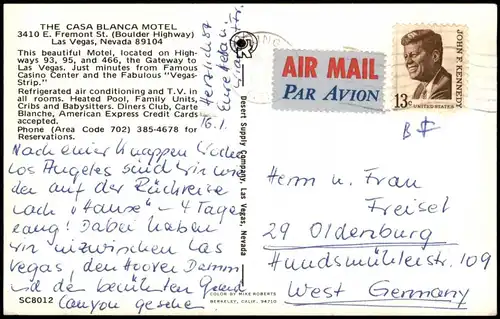 THE CASA BLANCA MOTEL
3410 E. Fremont St. (Boulder Highway)
Las Vegas, Nevada 89104
This beautiful Motel, located on High-
ways 93, 95, and 466, the Gateway to
Las Vegas. Just minutes from Famous
Casino Center and the Fabulous "Vegas-
Strip."
Refrigerated air conditioning and T.V. in
all rooms. Heated Pool, Family Units,
Cribs and Babysitters. Diners Club, Carte
Blanche, American Express Credit Cards
accepted.
Phone (Area Code 702) 385-4678 for
Reservations.
Nach einer knappen Woche
Los Angeles sind wir wie-
der auf der Rückreise
nach "Hause" - 4 Tage
lang! Dabei haben
wir inzwischen Las
Vegas, den Hoover Damm
und den berühmten Grand
Canyon gesehen.
SC8012
16.1.
Herzlichst
Eure
Desert Supply Company, Las Vegas, Nevada
COLOR BY MIKE ROBERTS
BERKELEY, CALIF. 94710
AIR MAIL
PAR AVION
JOHN F. KENNEDY
13c
UNITED STATES
Herrn u. Frau
Freisel
29 Oldenburg
Hundsmühlerstr. 109
West Germany